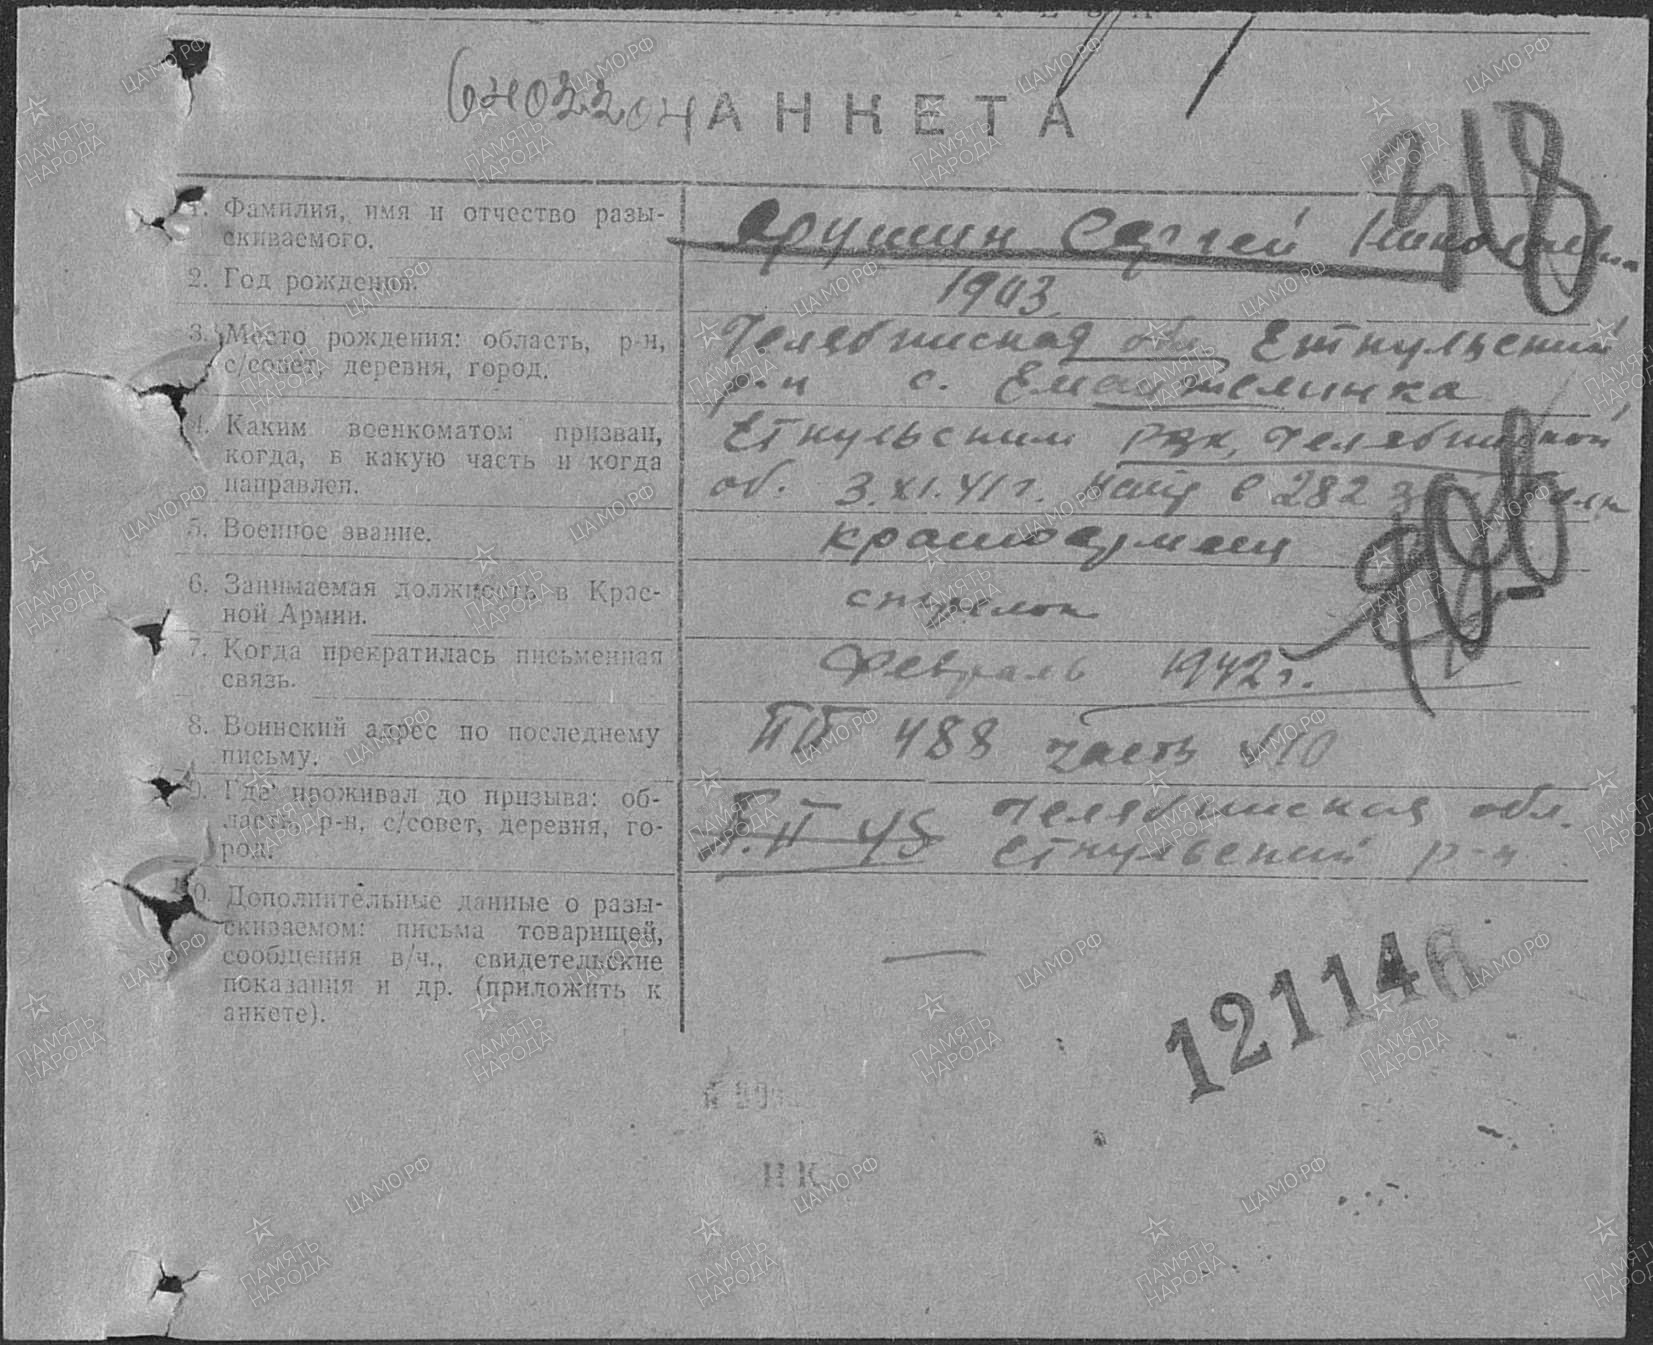 64022204
АНКЕТА
318
1. Фамилия, имя и отчество разы-
скиваемого.
Ярушин Сергей Николаевич
2. Год рождения.
1903.
3. Место рождения: область, р-н,
с/совет, деревня, город.
Челябинская обл Еткульский
р-н с. Еманжелинка
4. Каким военкоматом призван,
когда, в какую часть и когда
направлен.
Еткульским РВК, Челябинской
об. 3.XI.41 г. 282
5. Военное звание.
красноармеец
906
6. Занимаемая должность в Крас-
ной Армии.
стрелок
7. Когда прекратилась письменная
связь.
Февраль 1942 г.
8. Воинский адрес по последнему
письму.
488 часть 410
9. Где проживал до призыва: об-
ласть, р-н, с/совет, деревня, го-
род.
45 Челябинская обл.
Еткульский р-н
10. Дополнительные данные о разы-
скиваемом: письма товарищей,
сообщения в/ч., свидетельские
показания и др. (приложить к
анкете).
—
121146
НК
ПАМЯТЬ НАРОДА
ЦАМО.РФ